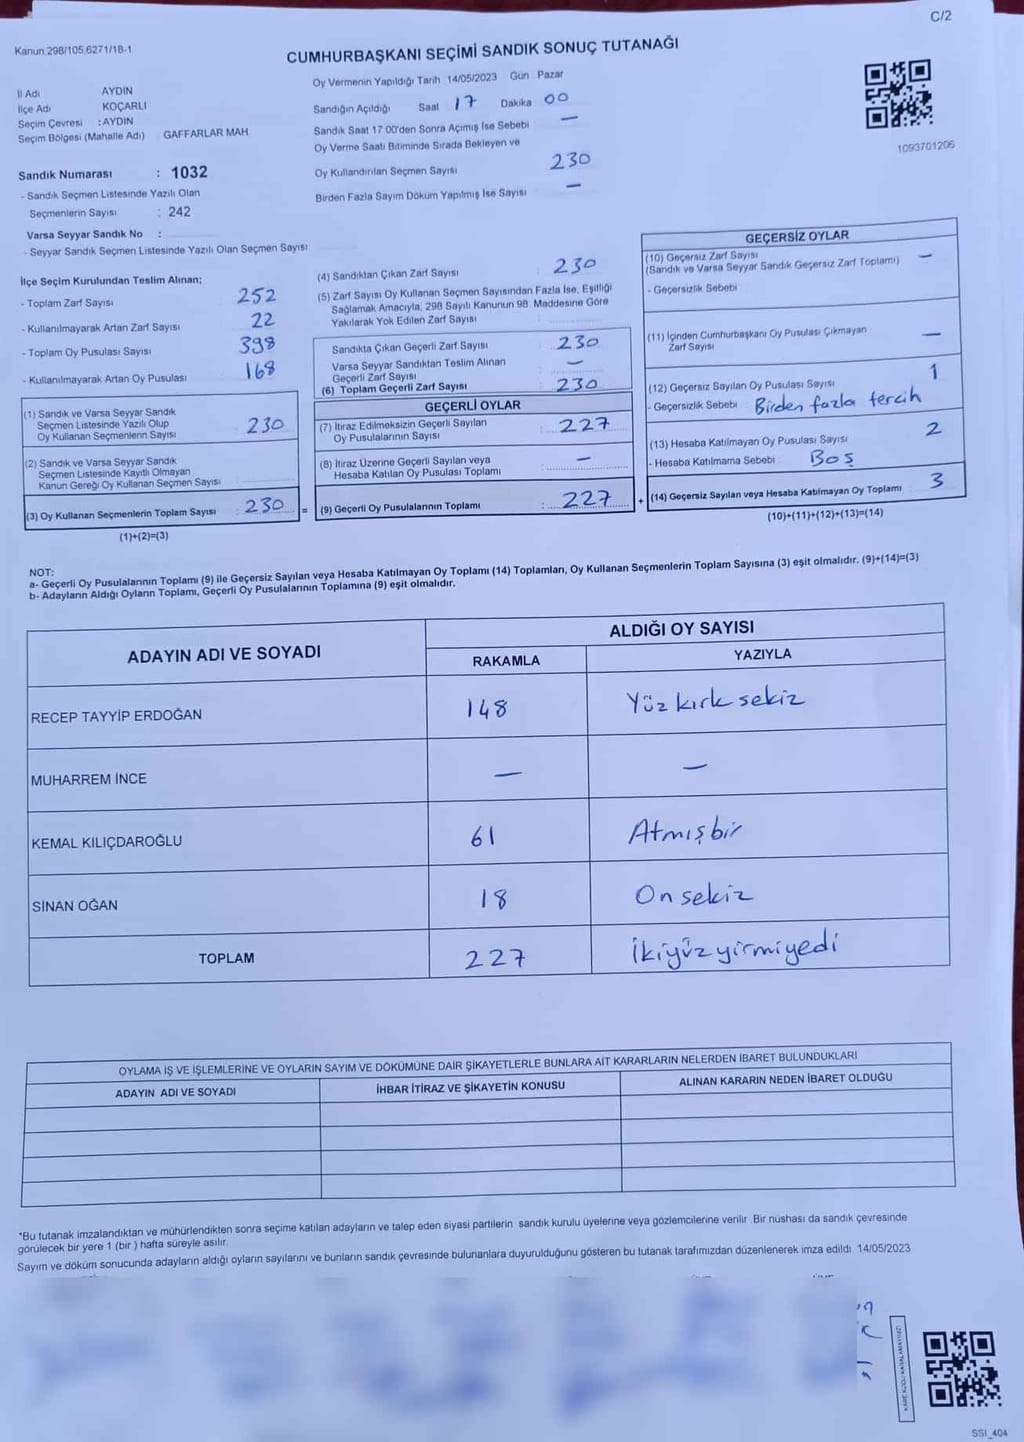 C/2
Kanun:298/105,6271/18-1
CUMHURBAŞKANI SEÇİMİ SANDIK SONUÇ TUTANAĞI
İl Adı AYDIN
İlçe Adı KOÇARLI
Seçim Çevresi : AYDIN
Seçim Bölgesi (Mahalle Adı) GAFFARLAR MAH
Sandık Numarası : 1032
- Sandık Seçmen Listesinde Yazılı Olan
Seçmenlerin Sayısı : 242
Varsa Seyyar Sandık No :
- Seyyar Sandık Seçmen Listesinde Yazılı Olan Seçmen Sayısı
Oy Vermenin Yapıldığı Tarih 14/05/2023 Gün Pazar
Sandığın Açıldığı Saat 17 Dakika 00
Sandık Saat 17 00'den Sonra Açımış İse Sebebi —
Oy Verme Saati Bitiminde Sırada Bekleyen ve
Oy Kullandırılan Seçmen Sayısı 230
Birden Fazla Sayım Döküm Yapılmış İse Sayısı —
1093701206
İlçe Seçim Kurulundan Teslim Alınan;
- Toplam Zarf Sayısı 252
- Kullanılmayarak Artan Zarf Sayısı 22
- Toplam Oy Pusulası Sayısı 398
- Kullanılmayarak Artan Oy Pusulası 168
(1) Sandık ve Varsa Seyyar Sandık
Seçmen Listesinde Yazılı Olup
Oy Kullanan Seçmenlerin Sayısı 230
(2) Sandık ve Varsa Seyyar Sandık
Seçmen Listesinde Kayıtlı Olmayan
Kanun Gereği Oy Kullanan Seçmen Sayısı
(3) Oy Kullanan Seçmenlerin Toplam Sayısı : 230 =
(1)+(2)=(3)
(4) Sandıktan Çıkan Zarf Sayısı : 230
(5) Zarf Sayısı Oy Kullanan Seçmen Sayısından Fazla İse, Eşitliği
Sağlamak Amacıyla, 298 Sayılı Kanunun 98 Maddesine Göre
Yakılarak Yok Edilen Zarf Sayısı
Sandıkta Çıkan Geçerli Zarf Sayısı : 230
Varsa Seyyar Sandıktan Teslim Alınan
Geçerli Zarf Sayısı : —
(6) Toplam Geçerli Zarf Sayısı : 230
GEÇERLİ OYLAR
(7) İtiraz Edilmeksizin Geçerli Sayılan
Oy Pusulalarının Sayısı : 227
(8) İtiraz Üzerine Geçerli Sayılan veya
Hesaba Katılan Oy Pusulası Toplamı : —
(9) Geçerli Oy Pusulalarının Toplamı : 227 +
GEÇERSİZ OYLAR
(10) Geçersiz Zarf Sayısı —
(Sandık ve Varsa Seyyar Sandık Geçersiz Zarf Toplamı)
- Geçersizlik Sebebi
(11) İçinden Cumhurbaşkanı Oy Pusulası Çıkmayan
Zarf Sayısı —
(12) Geçersiz Sayılan Oy Pusulası Sayısı 1
- Geçersizlik Sebebi : Birden fazla tercih
(13) Hesaba Katılmayan Oy Pusulası Sayısı 2
- Hesaba Katılmama Sebebi : Boş
(14) Geçersiz Sayılan veya Hesaba Katılmayan Oy Toplamı 3
(10)+(11)+(12)+(13)=(14)
NOT:
a- Geçerli Oy Pusulalarının Toplamı (9) ile Geçersiz Sayılan veya Hesaba Katılmayan Oy Toplamı (14) Toplamları, Oy Kullanan Seçmenlerin Toplam Sayısına (3) eşit olmalıdır. (9)+(14)=(3)
b- Adayların Aldığı Oyların Toplamı, Geçerli Oy Pusulalarının Toplamına (9) eşit olmalıdır.
ADAYIN ADI VE SOYADI ALDIĞI OY SAYISI
RAKAMLA YAZIYLA
RECEP TAYYİP ERDOĞAN 148 Yüz kırk sekiz
MUHARREM İNCE — —
KEMAL KILIÇDAROĞLU 61 Atmışbir
SİNAN OĞAN 18 On sekiz
TOPLAM 227 İkiyüzyirmiyedi
OYLAMA İŞ VE İŞLEMLERİNE VE OYLARIN SAYIM VE DÖKÜMÜNE DAİR ŞİKAYETLERLE BUNLARA AİT KARARLARIN NELERDEN İBARET BULUNDUKLARI
ADAYIN ADI VE SOYADI İHBAR İTİRAZ VE ŞİKAYETİN KONUSU ALINAN KARARIN NEDEN İBARET OLDUĞU
*Bu tutanak imzalandıktan ve mühürlendikten sonra seçime katılan adayların ve talep eden siyasi partilerin sandık kurulu üyelerine veya gözlemcilerine verilir Bir nüshası da sandık çevresinde
görülecek bir yere 1 (bir ) hafta süreyle asılır.
Sayım ve döküm sonucunda adayların aldığı oyların sayılarını ve bunların sandık çevresinde bulunanlara duyurulduğunu gösteren bu tutanak tarafımızdan düzenlenerek imza edildi 14/05/2023
KARE KODU KARALAMAYINIZ!
SSI_404